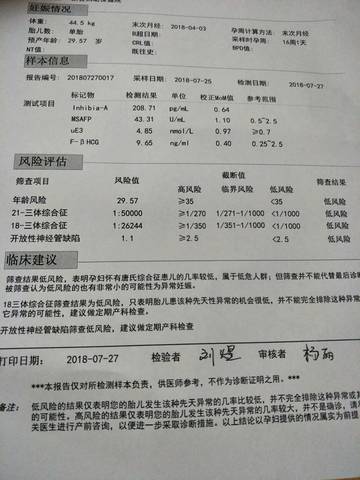 妊娠情况
体重: 44.5 kg 末次月经: 2018-04-03 孕周计算方法: 末次月经
胎儿数: 单胎 B超日期: 采样时孕周: 16周1天
预产年龄: 29.57 岁 CRL值: BPD值:
NT值: 既往史:
样本信息
报告编号: 201807270017 采样日期: 2018-07-25 检测日期: 2018-07-27
标记物 检测结果 单位 校正MoM值 参考范围
测试项目 Inhibia-A 208.71 pg/mL 0.64
MSAFP 43.31 U/mL 1.10 0.5~2.5
uE3 4.85 nmol/L 0.97 ≥0.7
F-βHCG 9.65 ng/ml 0.40 0.25~2.5
风险评估
筛查项目 风险值 截断值 筛查结果
高风险 临界风险 低风险
年龄风险 29.57 ≥35 <35 低风险
21-三体综合征 1:50000 ≥1/270 1/271-1/1000 <1/1000 低风险
18-三体综合征 1:26244 ≥1/350 1/351-1/1000 <1/1000 低风险
开放性神经管缺陷 1.1 ≥2.5 <2.5 低风险
临床建议
筛查结果低风险,表明孕妇怀有唐氏综合征患儿的几率较低,属于低危人群;但筛查并不能代替最后诊断
被筛查认为低风险的也有非常小的可能性为异常妊娠.
18三体综合征筛查结果为低风险,只表明胎儿患该种先天性异常的机会很低,并不能完全排除这种异常
它异常的可能性,建议做定期产科检查.
开放性神经管缺陷筛查低风险,建议做定期产科检查
打印日期: 2018-07-27 检验者 刘煜 审核者 杨丽
***本报告仅对所检测样本负责,供医师参考,不作为诊断证明之用.***
备注: 低风险的结果仅表明您的胎儿发生该种先天异常的几率比较低,并不能完全排除这种异常或其
的可能性。高风险的结果仅表明您的胎儿发生该种先天异常的几率较大,并不是确诊,请与
关医生进行产前咨询,以便进一步采取诊断措施。以上结论以孕妇提供的情况属实为前提